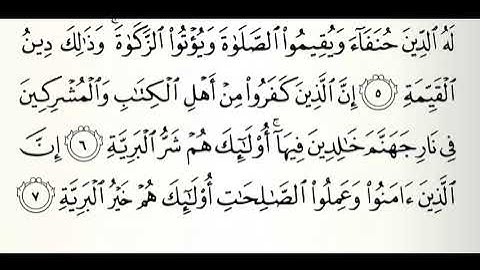 لَهُ ٱلدِّينَ حُنَفَآءَ وَيُقِيمُوا۟ ٱلصَّلَوٰةَ وَيُؤْتُوا۟ ٱلزَّكَوٰةَ ۚ وَذَٰلِكَ دِينُ
ٱلْقَيِّمَةِ ٥ إِنَّ ٱلَّذِينَ كَفَرُوا۟ مِنْ أَهْلِ ٱلْكِتَٰبِ وَٱلْمُشْرِكِينَ
فِى نَارِ جَهَنَّمَ خَٰلِدِينَ فِيهَآ ۚ أُو۟لَٰٓئِكَ هُمْ شَرُّ ٱلْبَرِيَّةِ ٦ إِنَّ
ٱلَّذِينَ ءَامَنُوا۟ وَعَمِلُوا۟ ٱلصَّٰلِحَٰتِ أُو۟لَٰٓئِكَ هُمْ خَيْرُ ٱلْبَرِيَّةِ ٧